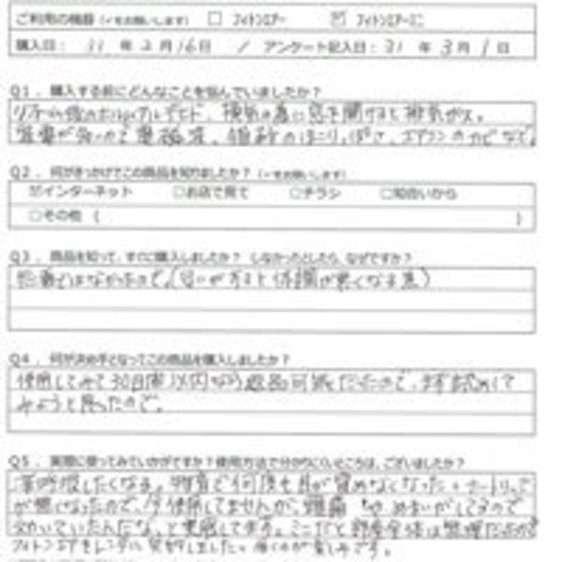 ご利用の機器（✓をお願いします） □ フィトンエアー ☑ フィトンエアーミニ
購入日： 31 年 2 月 16 日 ／ アンケート記入日： 31 年 3 月 1 日
Q1． 購入する前にどんなことを悩んでいましたか？
換気の為に窓を開けると排気ガス。
電磁波、 エアコンのカビなど。
Q2． 何がきっかけでこの商品を知りましたか？（✓をお願いします）
☑インターネット □お店で見て □チラシ □知合いから
□その他（ ）
Q3． 商品を知って、すぐに購入しましたか？ しなかったとしたら、なぜですか？
ではなかったので。（匂いが 体調が悪くなる為）
Q4． 何が決め手となってこの商品を購入しましたか？
使用してみて30日間以内なら返品可能だったので、まず試めして
みようと思ったので。
Q5． 実際に使ってみていかがですか？使用方法で分かりにくいところは、ございましたか？
深呼吸したくなる。物音で何度も目が覚めなくなった。カートリッジ
が無くなったので、今使用してませんが、頭痛 やめまいがしてるので
効いていたんだな、と実感してます。ミニだと部屋全体は無理だったので
フィトンエアをレンタル しました。届くのが楽しみです。